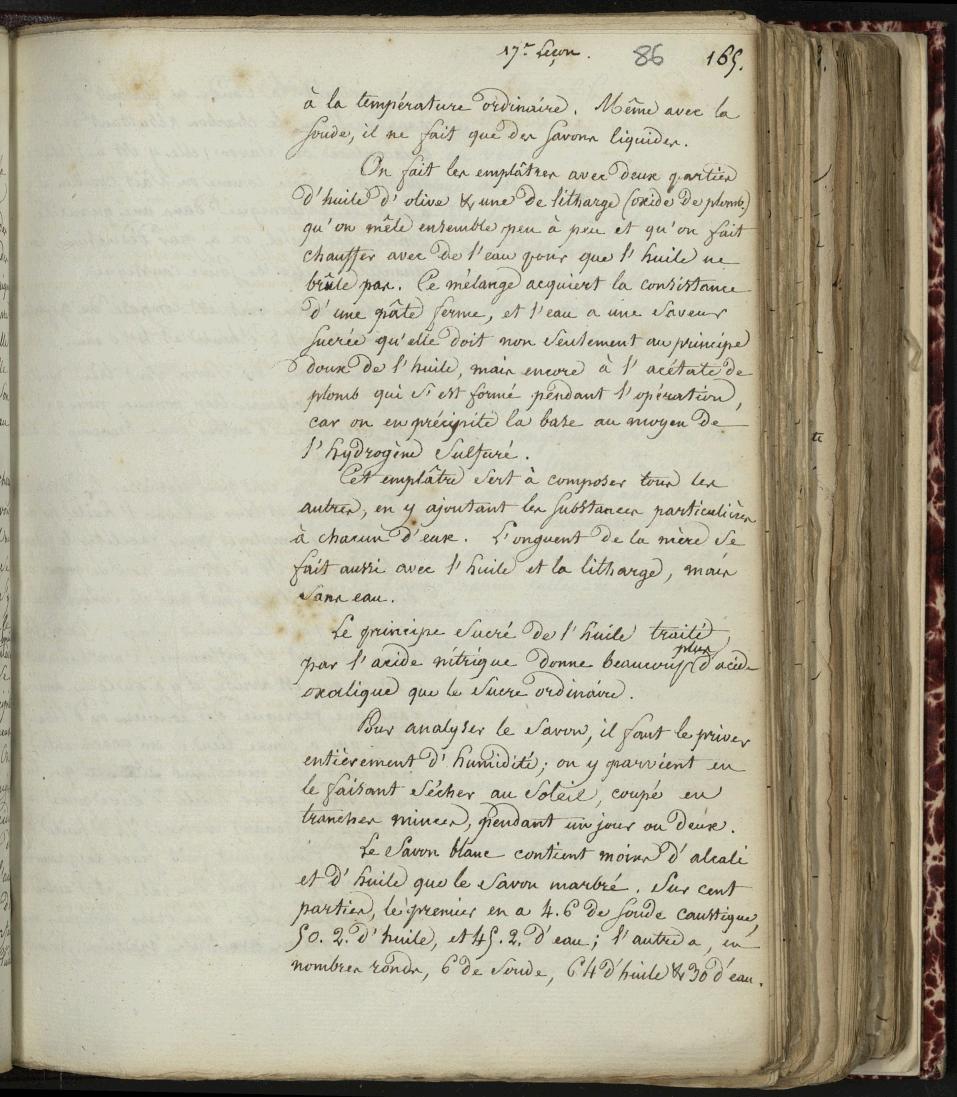 17.e Leçon. 86 165.
à la température ordinaire. Même avec la
soude, il ne fait que des savons liquides.
On fait les emplâtres avec deux parties
d'huile d'olive & une de litharge (oxide de plomb)
qu'on mêle ensemble peu à peu et qu'on fait
chauffer avec de l'eau pour que l'huile ne
brûle pas. Ce mélange acquiert la consistance
d'une pâte ferme, et l'eau a une saveur
sucrée qu'elle doit non seulement au principe
doux de l'huile, mais encore à l'acétate de
plomb qui s'est formé pendant l'opération,
car on en précipite la base au moyen de
l'hydrogène sulfuré.
Cet emplâtre sert à composer tous les
autres, en y ajoutant les substances particulières
à chacun d'eux. L'onguent de la mère se
fait aussi avec l'huile et la litharge, mais
sans eau.
Le principe sucré de l'huile traité,
par l'acide nitrique donne beaucoup plus d'acide
oxalique que le sucre ordinaire.
Pour analyser le savon, il faut le priver
entièrement d'humidité; on y parvient en
le faisant sécher au soleil, coupé en
tranches minces, pendant un jour ou deux.
Le savon blanc contient moins d'alcali
et d'huile que le savon marbré. Sur cent
parties, le premier en a 4.6 de soude caustique,
50.2. d'huile, et 45.2. d'eau; l'autre a, en
nombres ronds, 6 de soude, 64 d'huile & 30 d'eau.